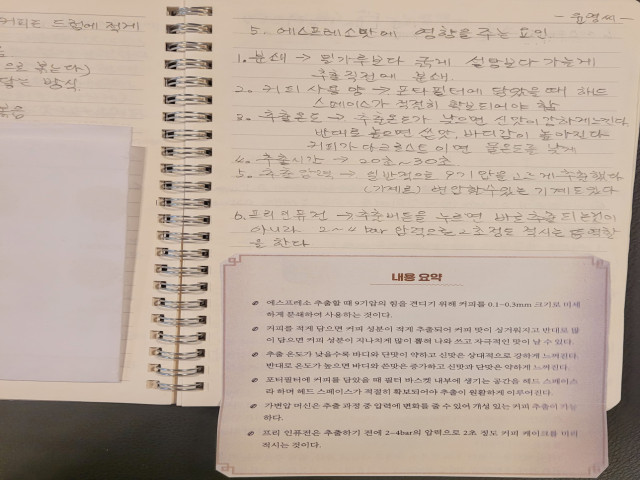 커피도 드립에 적게
으로 볶는다)
담는 방식.
볶음
- 윤영씨 -
5. 에스프레소맛에 영향을 주는 요인
1. 분쇄 → 밀가루보다 굵게 설탕보다 가늘게
추출직전에 분쇄.
2. 커피 사용 양 → 포타필터에 담았을 때 헤드
스페이스가 적절히 확보되어야 함
3. 추출온도 → 추출온도가 낮으면 신맛이 강하게느낀다.
반대로 높으면 쓴맛, 바디감이 높아진다
커피가 다크로스트이면 물온도를 낮게
4. 추출시간 → 20초~30초
5. 추출압력 → 일반적으로 9기압을
(가제로) 변압할수있는 기계도있다
6. 프리인퓨전 → 추출버튼을 누르면 바로 추출 되는것이
아니라 2~4 bar 압력으로 2초정도 적시는 동작
을 한다
내용 요약
에스프레소 추출할 때 9기압의 힘을 견디기 위해 커피를 0.1~0.3mm 크기로 미세
하게 분쇄하여 사용하는 것이다.
커피를 적게 담으면 커피 성분이 적게 추출되어 커피 맛이 싱거워지고 반대로 많
이 담으면 커피 성분이 지나치게 많이 뽑혀 나와 쓰고 자극적인 맛이 날 수 있다.
추출 온도가 낮을수록 바디와 단맛이 약하고 신맛은 상대적으로 강하게 느껴진다.
반대로 온도가 높으면 바디와 쓴맛은 증가하고 신맛과 단맛은 약하게 느껴진다.
포터필터에 커피를 담았을 때 필터 바스켓 내부에 생기는 공간을 헤드 스페이스
라 하며 헤드 스페이스가 적절히 확보되어야 추출이 원활하게 이루어진다.
가변압 머신은 추출 과정 중 압력에 변화를 줄 수 있어 개성 있는 커피 추출이 가능
하다.
프리 인퓨전은 추출하기 전에 2~4bar의 압력으로 2초 정도 커피 케이크를 미리
적시는 것이다.